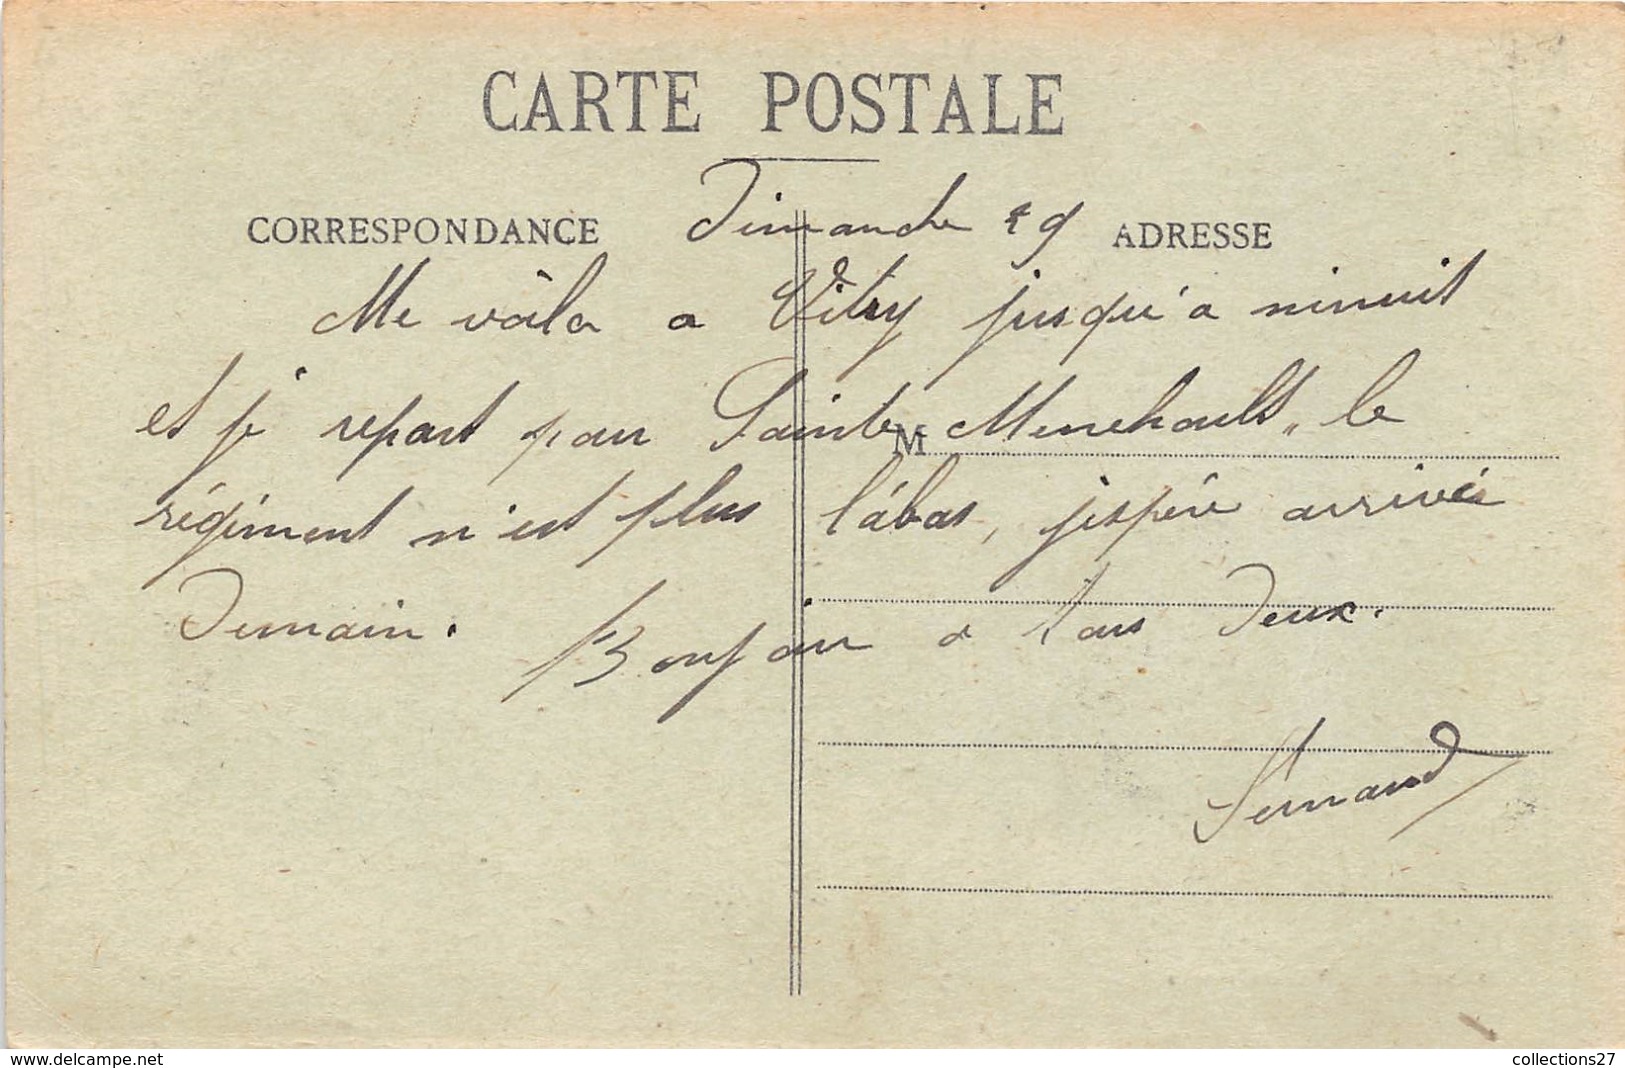 CARTE POSTALE
CORRESPONDANCE Dimanche 19 ADRESSE
Me voila a Vitry jusqu'a minuit
et je repart pour Sainte Menehoult, le
M
régiment n'est plus lábas, j'espére arrivée
Demain. Bonjour a tous Deux.
Fernand
www.delcampe.net
collections27